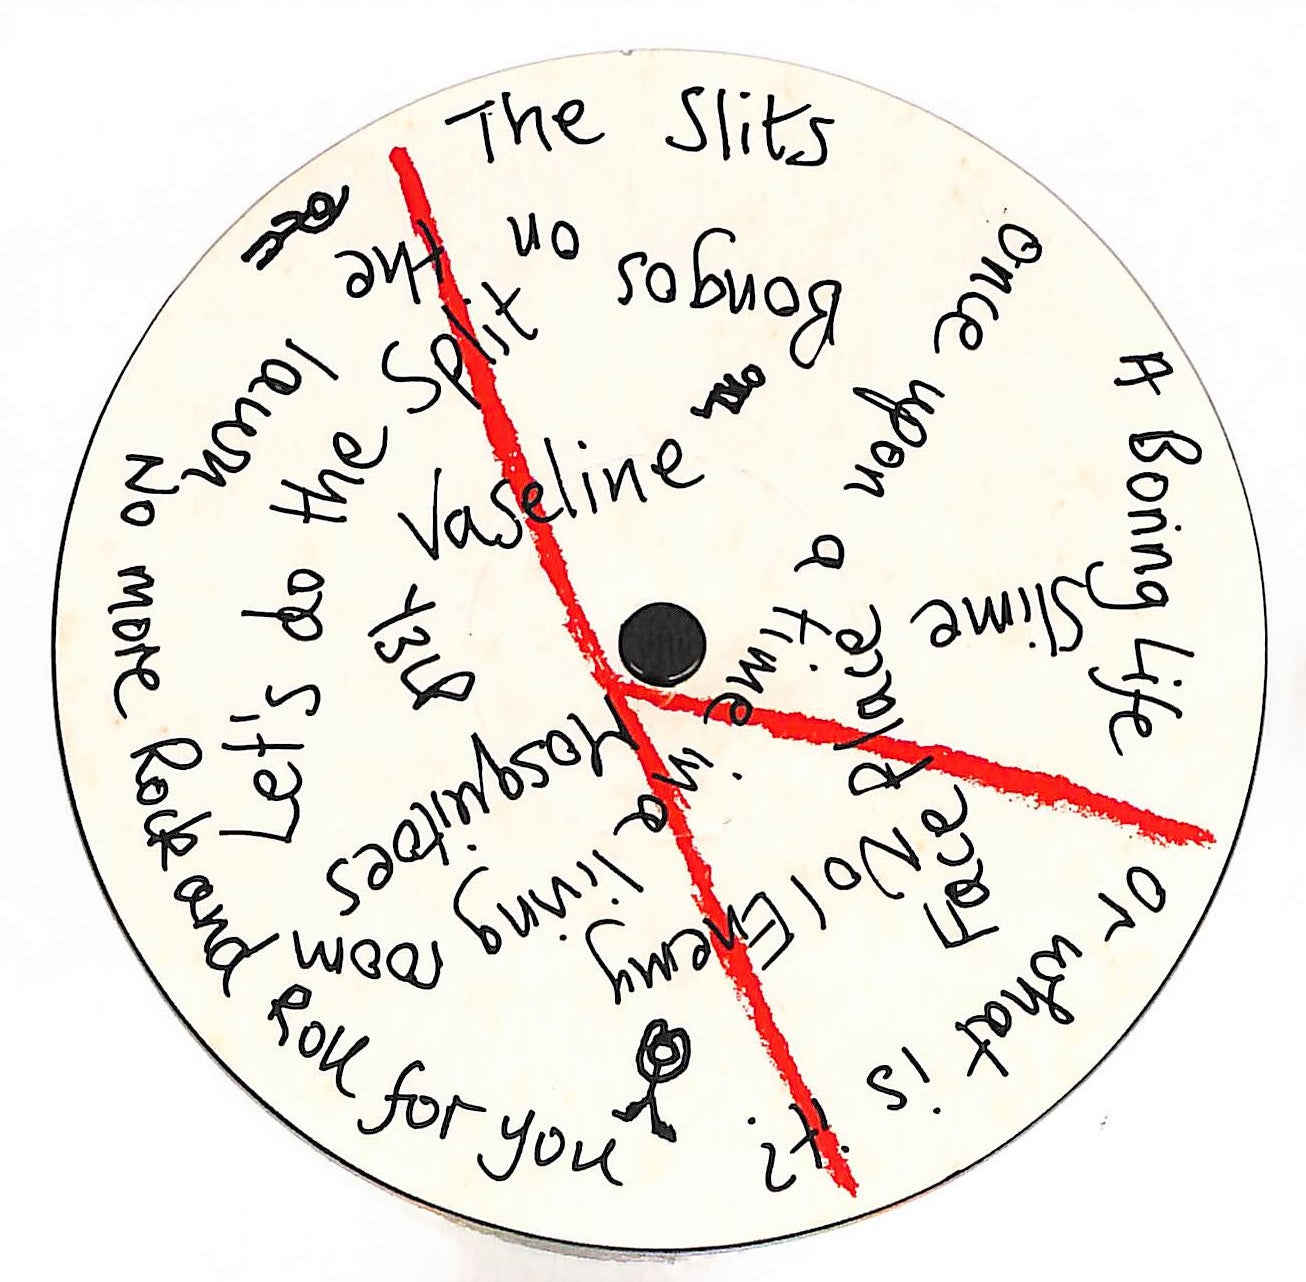 The Slits
A Boring Life
Or what is it?
No more Rock and Roll for you
Once upon a time in a living room
Slime
Face Place
No 1 Enemy
Mosquitoes
Let's do the Split
Vaseline
Bongos on the lawn
Y3LP